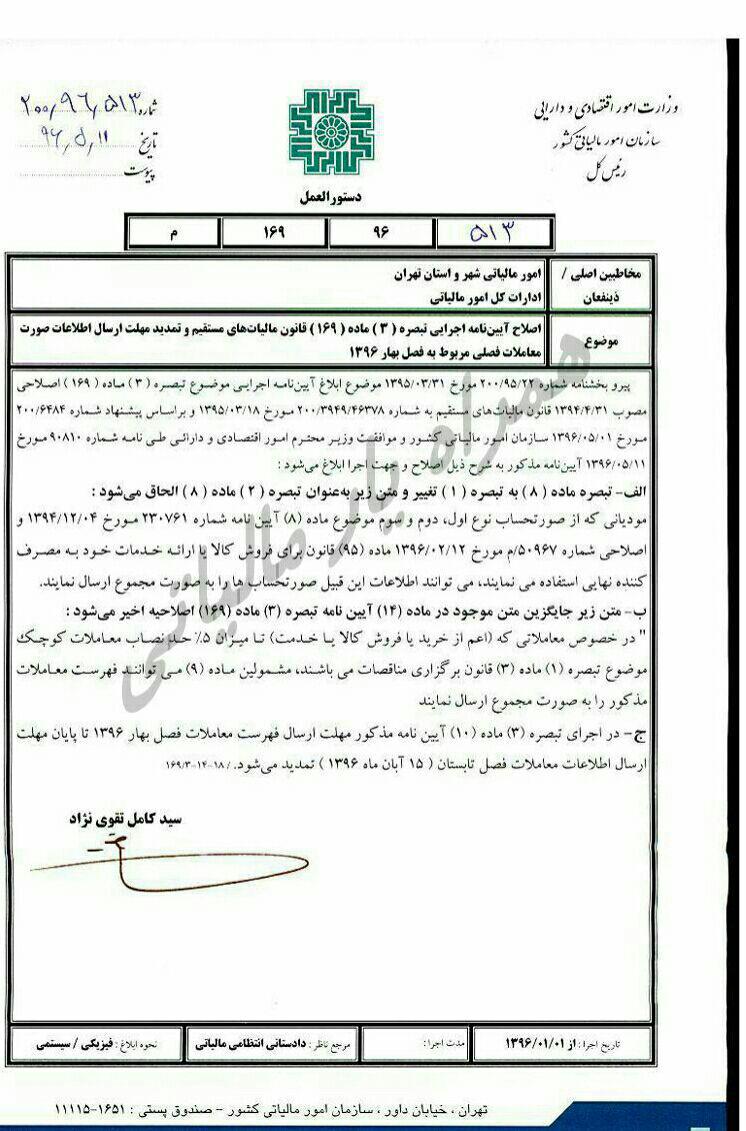 وزارت امور اقتصادی و دارایی
سازمان امور مالیاتی کشور
رئیس کل
شماره ۲۰۰٫۹۶٫۵۱۳
تاریخ ۹۶٫۵٫۱۱
پیوست
دستورالعمل
۵۱۳ ۹۶ ۱۶۹ م
مخاطبین اصلی / ذینفعان
امور مالیاتی شهر و استان تهران
ادارات کل امور مالیاتی
موضوع
اصلاح آیین‌نامه اجرایی تبصره ( ۳ ) ماده ( ۱۶۹ ) قانون مالیات‌های مستقیم و تمدید مهلت ارسال اطلاعات صورت
معاملات فصلی مربوط به فصل بهار ۱۳۹۶
پیرو بخشنامه شماره ۲۰۰/۹۵/۲۲ مورخ ۱۳۹۵/۰۳/۳۱ موضوع ابلاغ آیین‌نامه اجرایی موضوع تبصره ( ۳ ) ماده ( ۱۶۹ ) اصلاحی
مصوب ۱۳۹۴/۴/۳۱ قانون مالیات‌های مستقیم به شماره ۲۰۰/۳۹۴۹/۴۶۳۷۸ مورخ ۱۳۹۵/۰۳/۱۸ و براساس پیشنهاد شماره ۲۰۰/۶۴۸۴
مورخ ۱۳۹۶/۰۵/۰۱ سازمان امور مالیاتی کشور و موافقت وزیر محترم امور اقتصادی و دارائی طی نامه شماره ۹۰۸۱۰ مورخ
۱۳۹۶/۰۵/۱۱ آیین‌نامه مذکور به شرح ذیل اصلاح و جهت اجرا ابلاغ می‌شود :
الف- تبصره ماده ( ۸ ) به تبصره ( ۱ ) تغییر و متن زیر به‌عنوان تبصره ( ۲ ) ماده ( ۸ ) الحاق می‌شود :
مودیانی که از صورتحساب نوع اول، دوم و سوم موضوع ماده (۸) آیین نامه شماره ۲۳۰۷۶۱ مورخ ۱۳۹۴/۱۲/۰۴ و
اصلاحی شماره ۵۰۹۶۷/م مورخ ۱۳۹۶/۰۲/۱۲ ماده (۹۵) قانون برای فروش کالا یا ارائه خدمات خود به مصرف
کننده نهایی استفاده می نمایند، می توانند اطلاعات این قبیل صورتحساب ها را به صورت مجموع ارسال نمایند.
ب- متن زیر جایگزین متن موجود در ماده (۱۴) آیین نامه تبصره (۳) ماده (۱۶۹) اصلاحیه اخیر می‌شود :
" در خصوص معاملاتی که (اعم از خرید یا فروش کالا یا خدمت) تا میزان ۵٪ حد نصاب معاملات کوچک
موضوع تبصره (۱) ماده (۳) قانون برگزاری مناقصات می باشند، مشمولین ماده (۹) می توانند فهرست معاملات
مذکور را به صورت مجموع ارسال نمایند
ج- در اجرای تبصره (۳) ماده (۱۰) آیین نامه مذکور مهلت ارسال فهرست معاملات فصل بهار ۱۳۹۶ تا پایان مهلت
ارسال اطلاعات معاملات فصل تابستان ( ۱۵ آبان ماه ۱۳۹۶ ) تمدید می‌شود./ ۱۸-۱۴-۱۶۹/۳
سید کامل تقوی نژاد
تاریخ اجرا : از ۱۳۹۶/۰۱/۰۱
مدت اجرا :
مرجع ناظر : دادستانی انتظامی مالیاتی
نحوه ابلاغ : فیزیکی / سیستمی
تهران ، خیابان داور ، سازمان امور مالیاتی کشور - صندوق پستی : ۱۶۵۱-۱۱۱۱۵
همراه یار مالیاتی